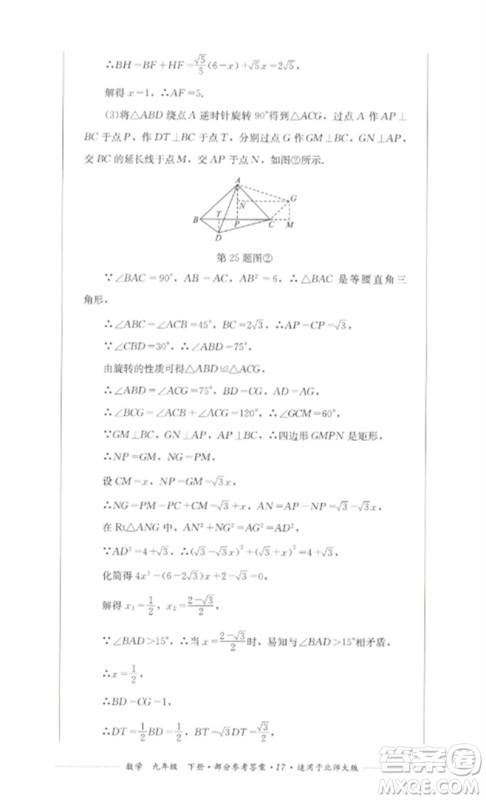 ∴BH=BF+HF=√5/5(6-x)+√5x=2√5,
解得 x=1,∴AF=5.
(3)将△ABD 绕点 A 逆时针旋转 90°得到△ACG,过点 A 作 AP⊥
BC 于点 P,作 DT⊥BC 于点 T,分别过点 G 作 GM⊥BC,交
BC 的延长线于点 M,交 AP 于点 N,如图②所示.
A
G
N
B
T
P
C
M
D
第 25 题图②
∵∠BAC=90°,AB=AC,AB²=6,∴△ABC 是等腰直角三
角形,
∴∠ABC=∠ACB=45°,BC=2√3,∴AP=CP=√3,
∵∠CBD=30°,∴∠ABD=75°,
由旋转的性质可得△ABD≌△ACG,
∴∠ABD=∠ACG=75°,BD=CG,
∴∠BCG=∠ACB+∠ACG=120°,∴∠GCM=60°,
∵GM⊥BC,GN⊥AP,AP⊥BC,∴四边形 GMPN 是矩形,
∴NP=GM,NG=PM,
设 CM=x,NP=GM=√3x,
∴NG=PM=CP+CM=√3+x,AN=AP-NP=√3-√3x,
在 Rt△ANG 中,AN²+NG²=AG²,
∵AD²=4+√3,∴(√3-√3x)²+(√3+x)²=4+√3,
化简得 4x²-(6-2√3)x+2-√3=0,
解得 x₁=1/2,x₂=(2-√3)/2,
∵∠BAD>15°,∴当 x=(2-√3)/2 时,易知与∠BAD>15°相矛盾,
∴x=1/2,
∴BD=CG=1,
∴DT=1/2BD=1/2,BT=√3DT=√3/2,
数学 九年级 下册·部分参考答案·17·适用于北师大版